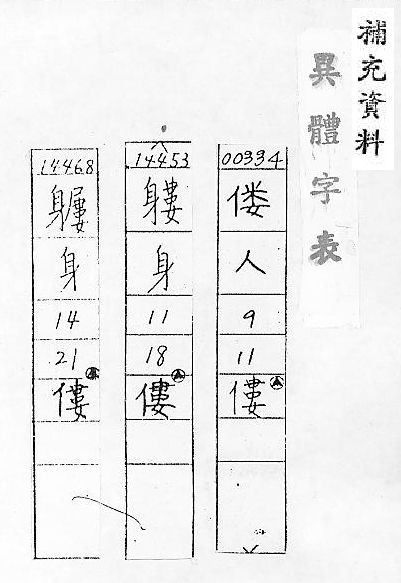 補充資料
異體字表
00334
偻
人
9
11
僂
14453
軁
身
11
18
僂
14468
身
14
21
僂